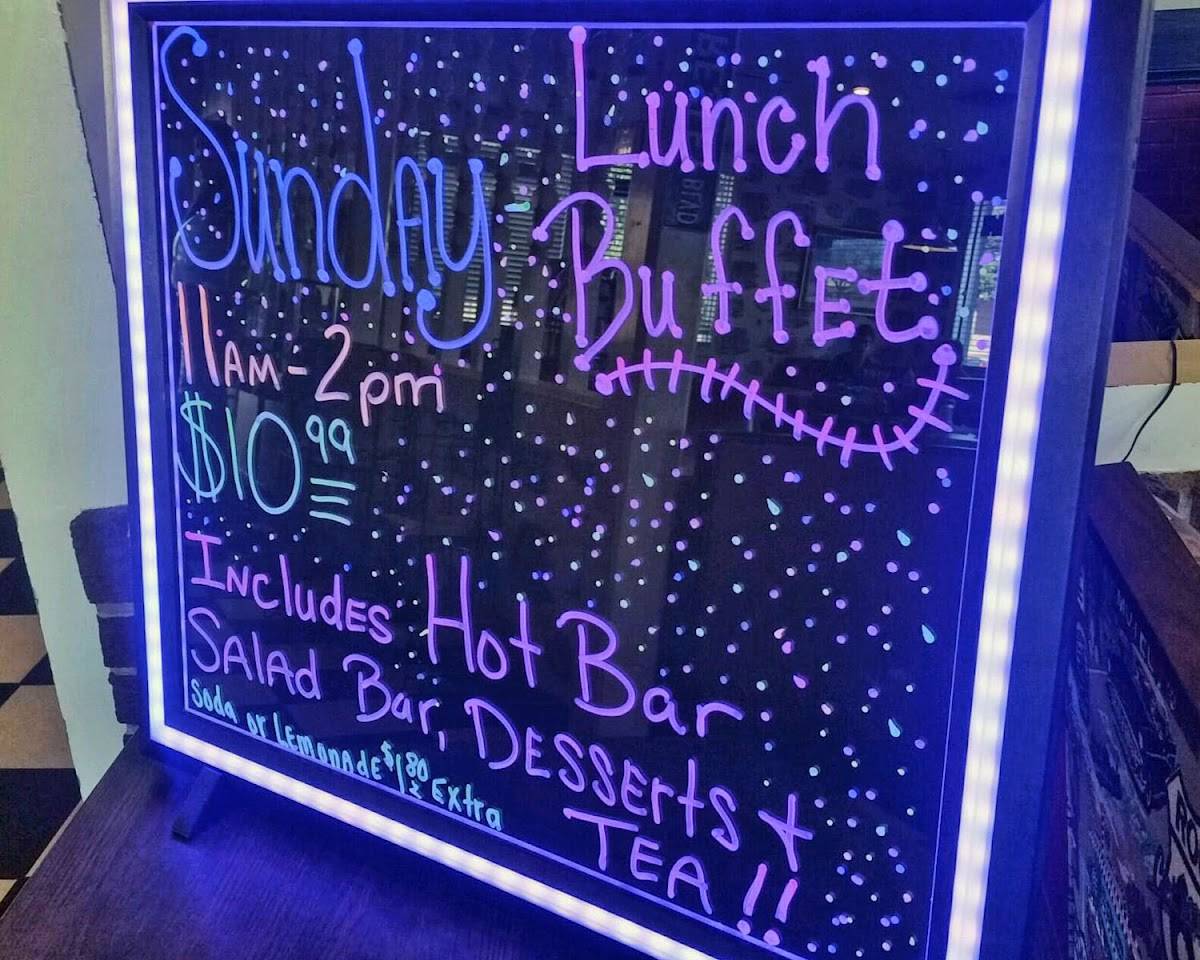 Sunday Lunch Buffet
11AM - 2pm
$10.99
Includes Hot Bar
Salad Bar, Desserts +
TEA!!
Soda or Lemonade $1.80 Extra